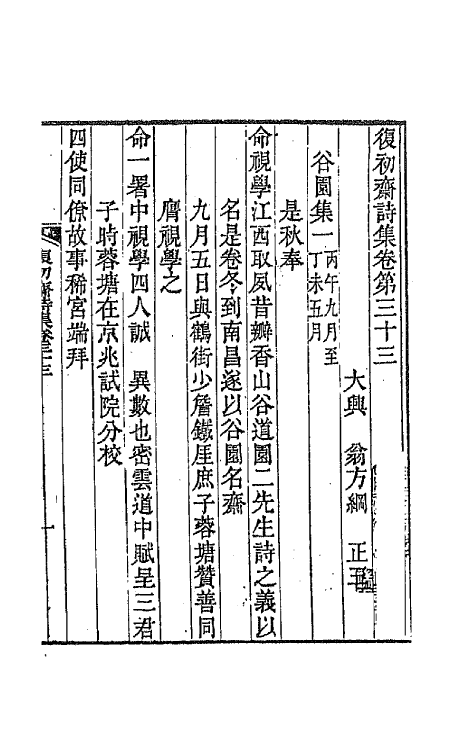 復初齋詩集卷第三十三
大興　翁方綱　正三
谷園集一丙午九月至丁未五月
是秋奉
命視學江西取夙昔瓣香山谷道園二先生詩之義以
名是卷冬到南昌遂以谷園名齋
九月五日與鶴街少詹鐵厓庶子蓉塘贊善同
膺視學之
命一署中視學四人誠　異數也密雲道中賦呈三君
子時蓉塘在京兆試院分校
四使同僚故事稀宮端拜
復初齋詩集卷三十三
一